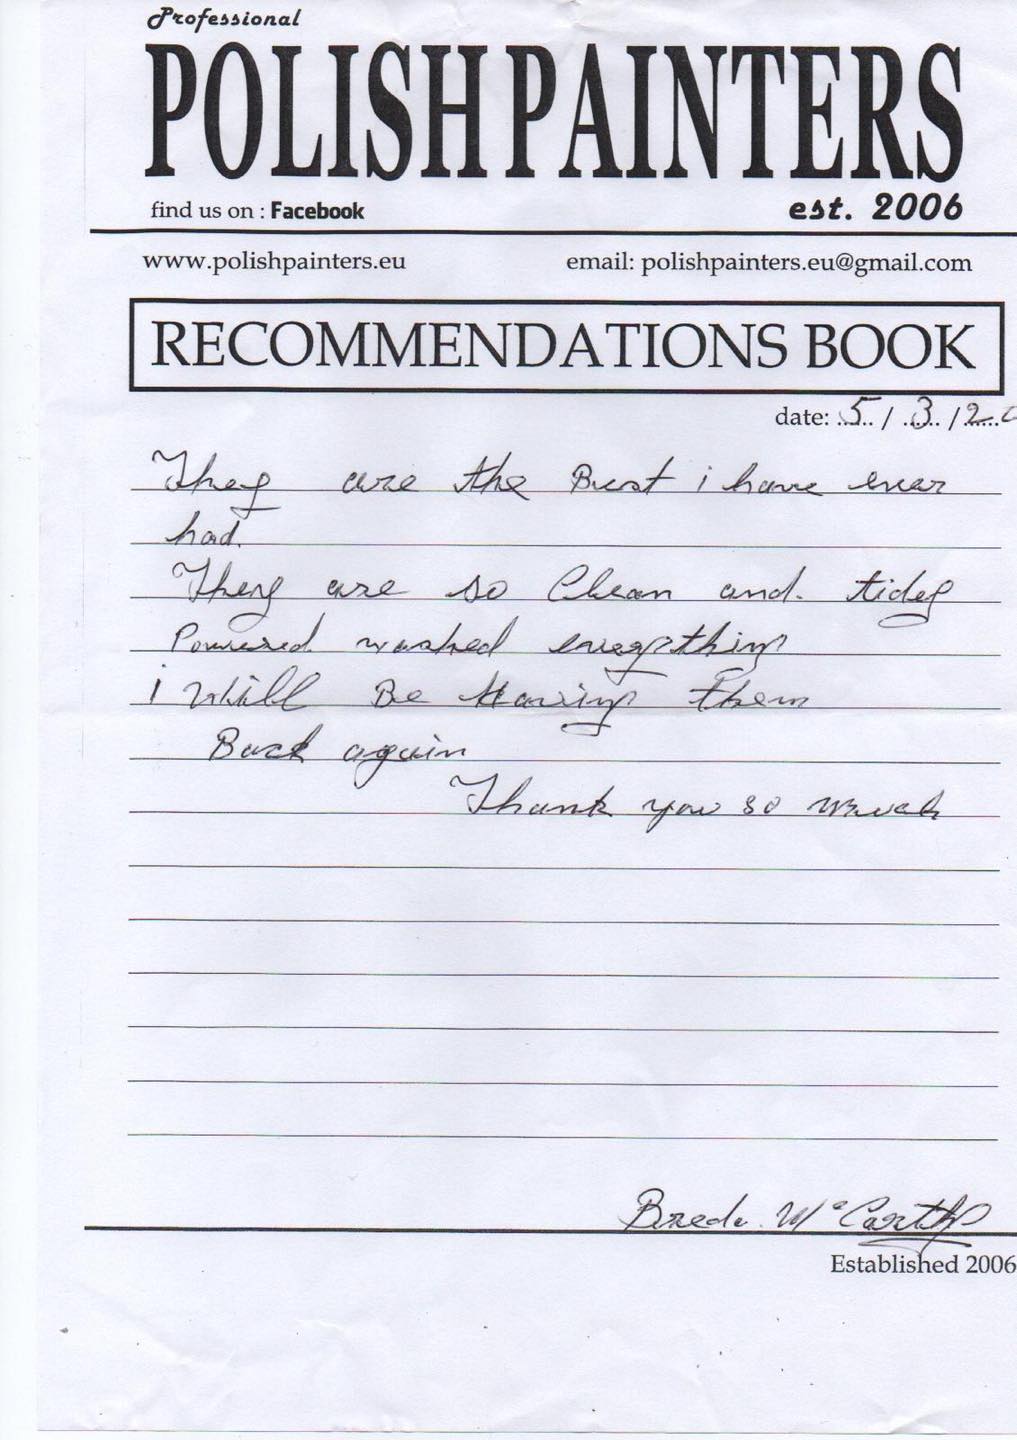 Professional
POLISH PAINTERS
find us on : Facebook est. 2006
www.polishpainters.eu email: polishpainters.eu@gmail.com
RECOMMENDATIONS BOOK
date: 5 / 3 / 20
They are the Best i have ever
had.
They are so Clean and tidey
Powered washed everything
i Will Be Having Them
Back again
Thank you so much
Breda McCarthy
Established 2006